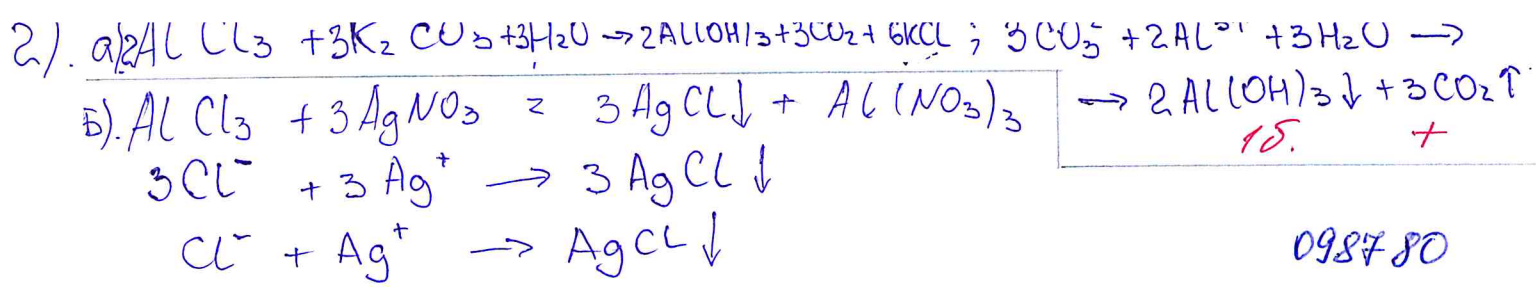 2). а) 2AlCl₃ + 3K₂CO₃ + 3H₂O → 2Al(OH)₃ + 3CO₂ + 6KCl ; 3CO₃²⁻ + 2Al³⁺ + 3H₂O →
→ 2Al(OH)₃↓ + 3CO₂↑
1б. +
Б). AlCl₃ + 3AgNO₃ = 3AgCl↓ + Al(NO₃)₃
3Cl⁻ + 3Ag⁺ → 3AgCl↓
Cl⁻ + Ag⁺ → AgCl↓
098780